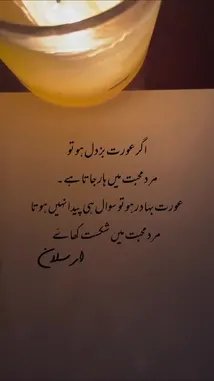 اگر عورت بزدل ہو تو
مرد محبت میں ہار جاتا ہے۔
عورت بہادر ہو تو سوال ہی پیدا نہیں ہوتا
مرد محبت میں شکست کھائے
ارسلان